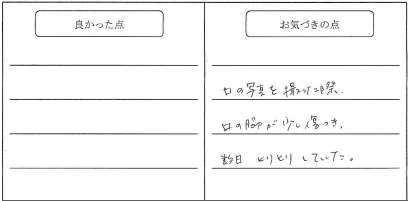 良かった点
お気づきの点
口の写真を撮った際、
口の脇が少し傷つき、
数日 ヒリヒリしていた。